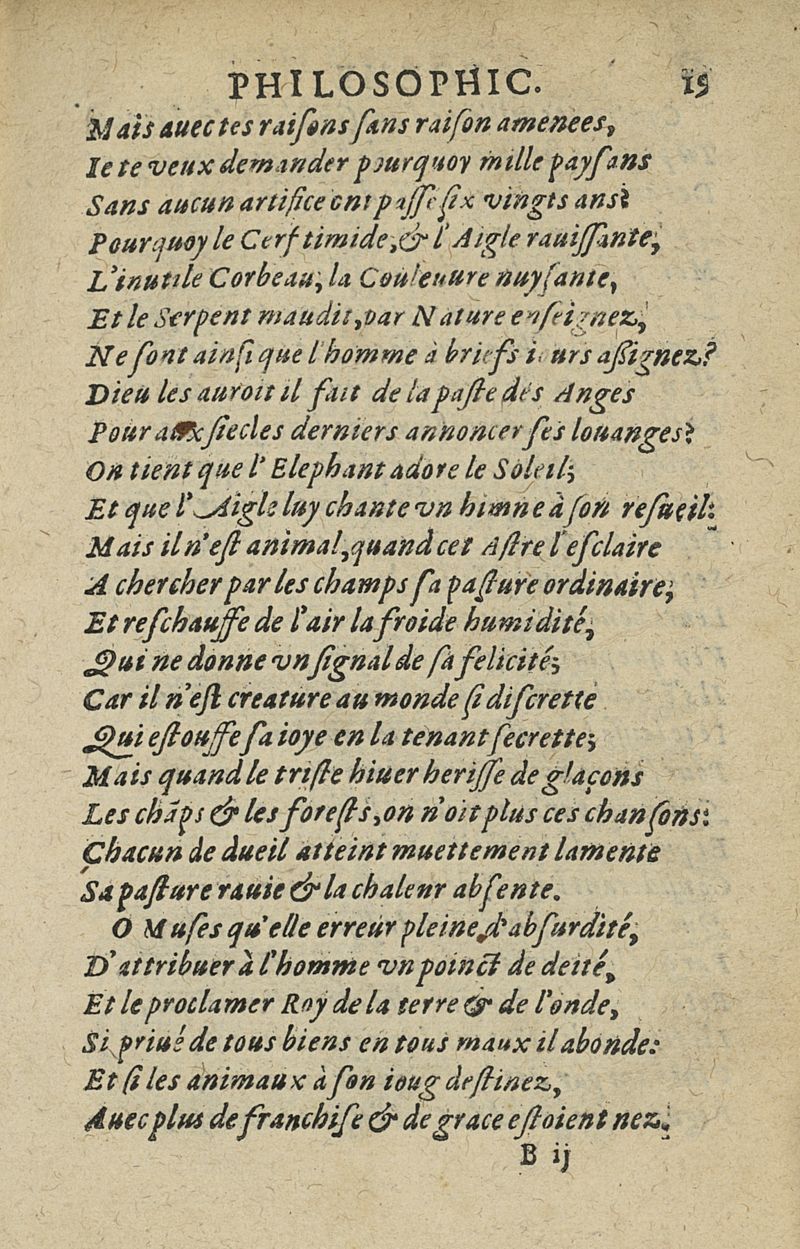 PHILOSOPHIC. 19
Mais auec tes raiſons ſans raiſon amenees,
Ie te veux demander pourquoy mille payſans
Sans aucun artifice ont paſſé ſix vingts ans?
Pourquoy le Cerf timide, & l'Aigle rauiſſante,
L'inutile Corbeau, la Couleuure nuyſante,
Et le Serpent maudit, par Nature enſeignez,
Ne ſont ainſi que l'homme à briefs iours aſſignez?
Dieu les auroit il fait de la paſte des Anges
Pour aux ſiecles derniers annoncer ſes louanges?
On tient que l'Elephant adore le Soleil;
Et que l'Aigle luy chante vn himne à ſon reſueil:
Mais il n'eſt animal, quand cet Aſtre l'eſclaire
A chercher par les champs ſa paſture ordinaire;
Et reſchauffe de l'air la froide humidité,
Qui ne donne vn ſignal de ſa felicité;
Car il n'eſt creature au monde ſi diſcrette
Qui eſtouffe ſa ioye en la tenant ſecrette;
Mais quand le triſte hiuer heriſſe de glaçons
Les chãps & les foreſts, on n'oit plus ces chanſons:
Chacun de dueil atteint muettement lamente
Sa paſture rauie & la chaleur abſente.
O Muſes qu'elle erreur pleine d'abſurdité,
D'attribuer à l'homme vn poinct de deité,
Et le proclamer Roy de la terre & de l'onde,
Si priué de tous biens en tous maux il abonde:
Et ſi les animaux à ſon ioug deſtinez,
Auec plus de franchiſe & de grace eſtoient nez.
B ij